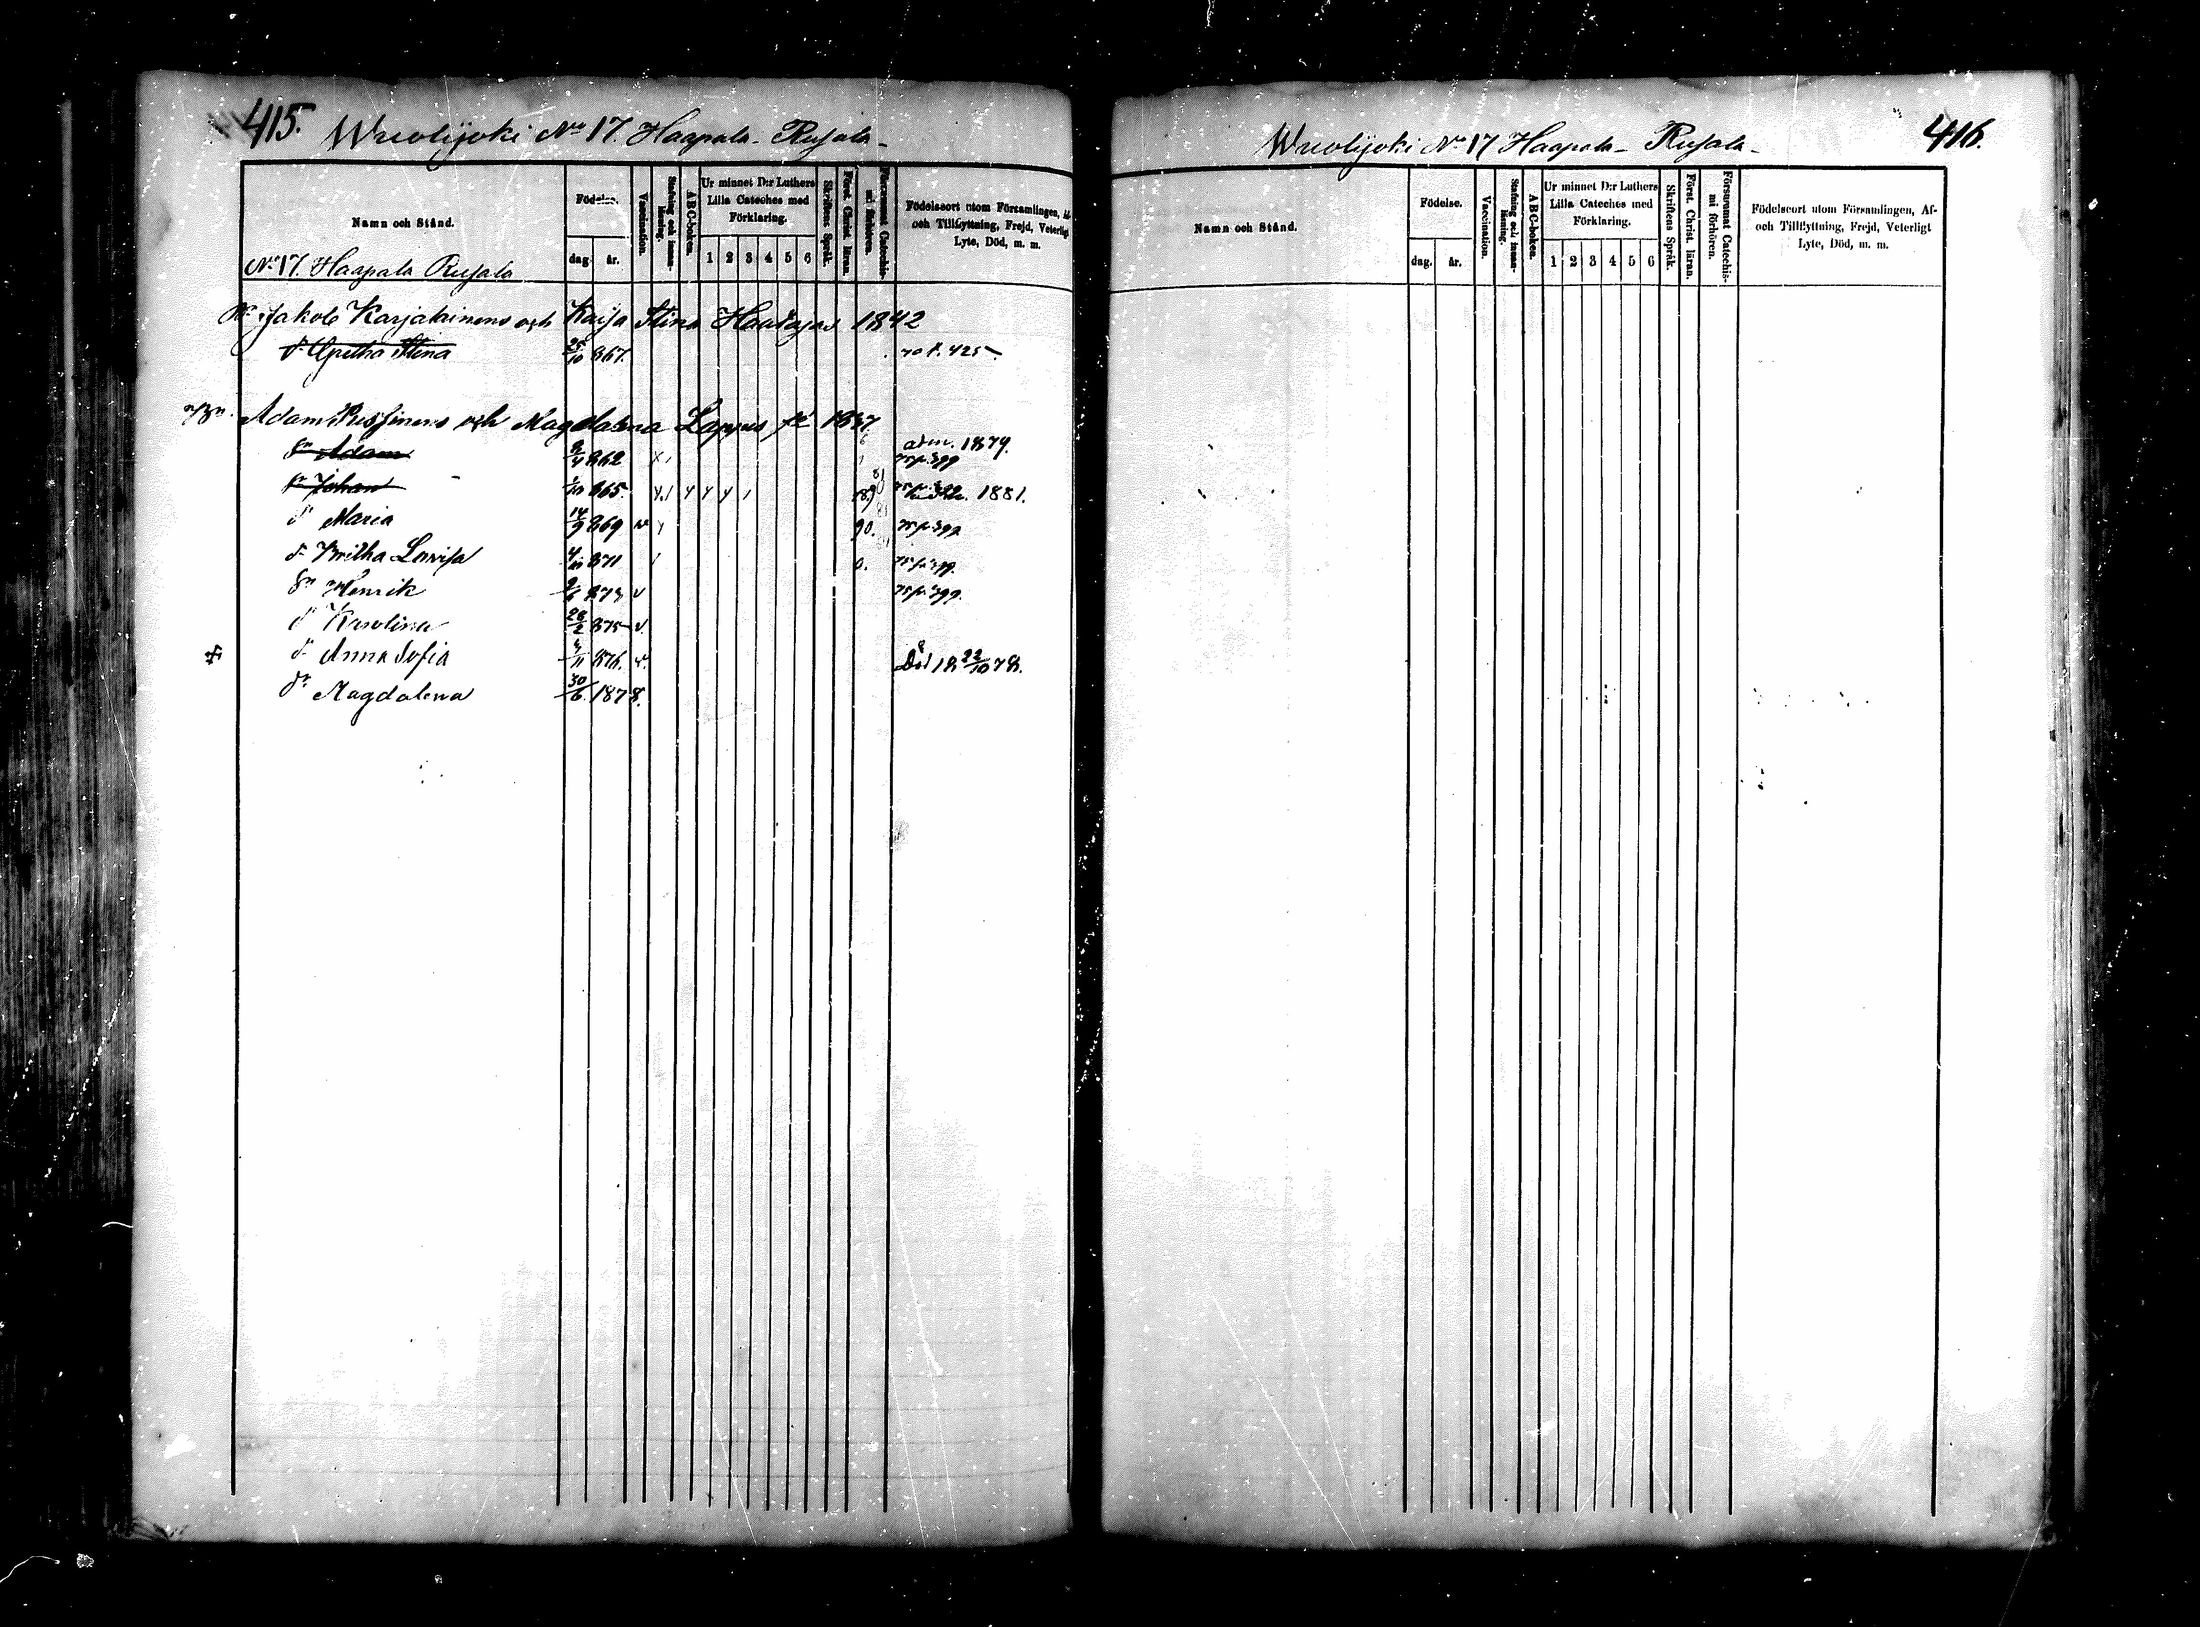 415. Wuolijoki No 17. Haapala-Rusala-
Namn och Stånd.
Födelse.
dag. år.
Vaccination.
Stafning och innan-läsning.
ABC-boken.
Ur minnet D:r Luthers Lilla Cateches med Förklaring.
1 2 3 4 5 6
Skriftens Språk.
Först. Christ. läran.
Försummat Catechis-mi förhören.
Födelseort utom Församlingen, Af-
och Tillflyttning, Frejd, Veterligt
Lyte, Död, m. m.
No 17. Haapala Rusala
Jakob Karjalainens och Kaija Stina 1842
dr Gretha Stina 25/10 867. 425
Adam och Magdalena Lappus 1837.
Sn Adam 862 1879.
sn Johan 865. 1881.
dr Maria 14/9 869 90.
dr Britha Lovisa 871
Sn Henrik 873
dr Karolina 28/2 875
dr Anna Sofia 876. Död 18 22/10 78.
dr Magdalena 30/6. 1878.
Wuolijoki No 17 Haapala- Rusala- 416.
Namn och Stånd.
Födelse.
dag. år.
Vaccination.
Stafning och innan-läsning.
ABC-boken.
Ur minnet D:r Luthers
Lilla Cateches med
Förklaring.
1 2 3 4 5 6
Skriftens Språk.
Först. Christ. läran.
Försummat Catechis-mi förhören.
Födelseort utom Församlingen, Af-
och Tillflyttning, Frejd, Veterligt
Lyte, Död, m. m.